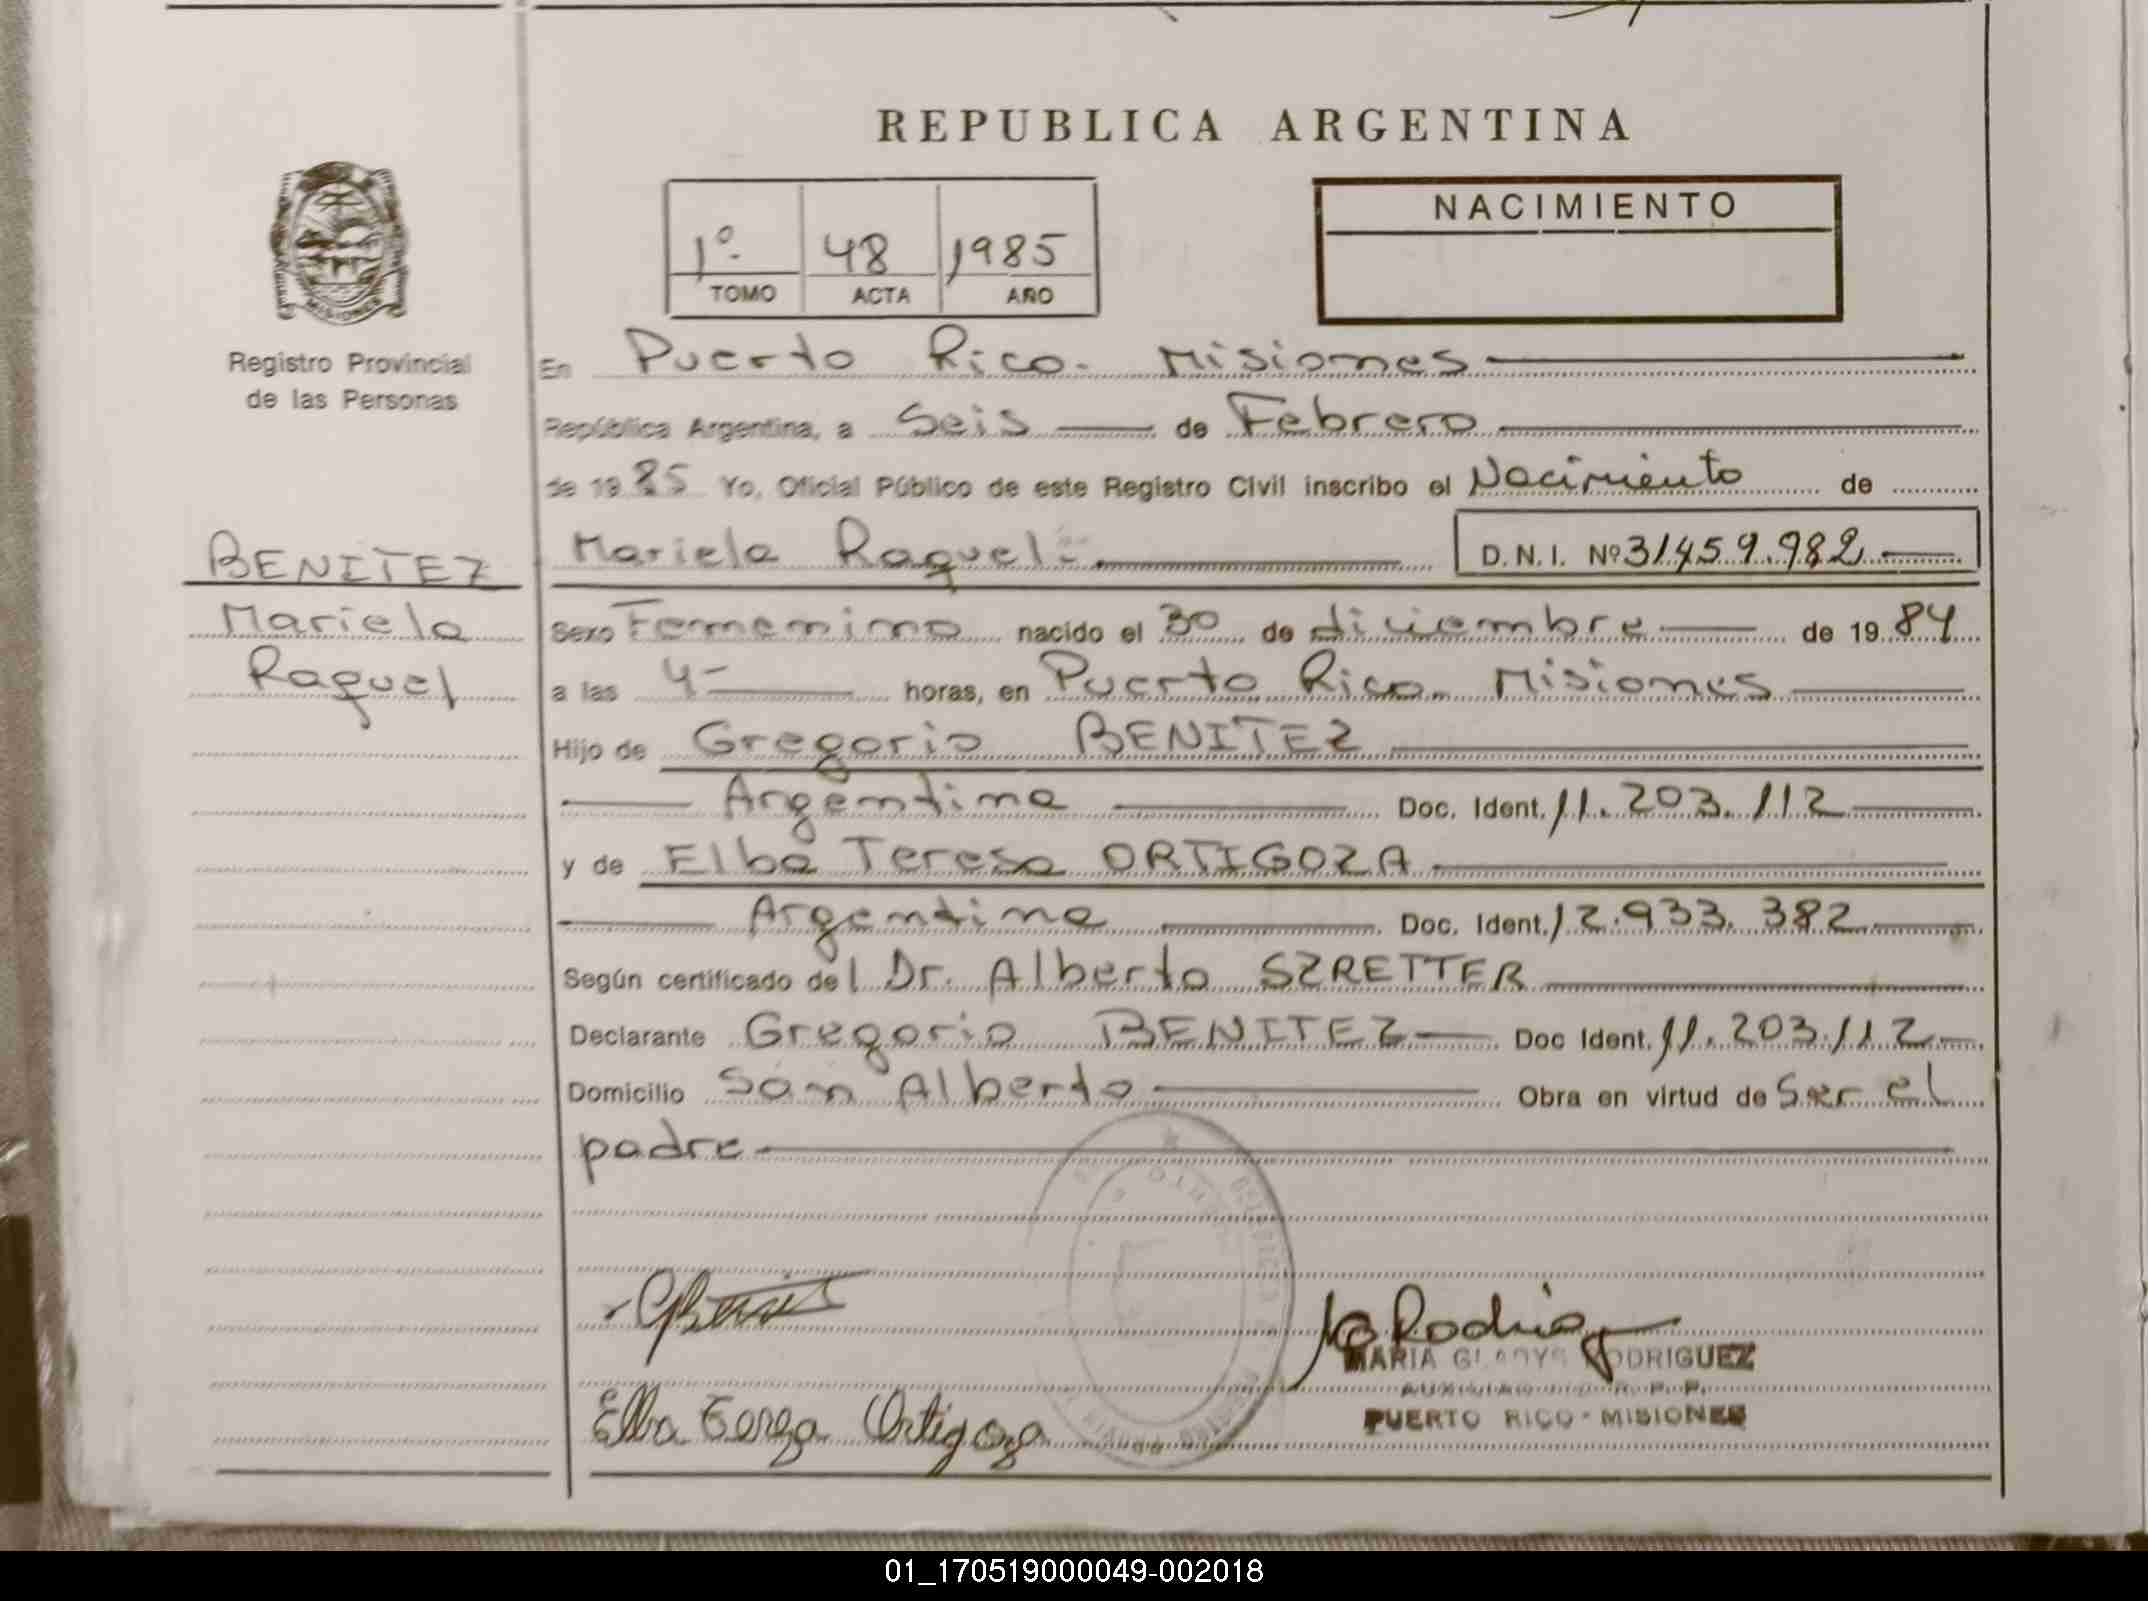 REPUBLICA ARGENTINA
1º- 48 1985
TOMO ACTA AÑO
NACIMIENTO
MISIONES
Registro Provincial
de las Personas
En Puerto Rico. Misiones
República Argentina, a Seis de Febrero
de 1985 Yo, Oficial Público de este Registro Civil inscribo el Nacimiento de
BENITEZ
Mariela
Raquel
Mariela Raquel.- D.N.I. Nº 31459.982
Sexo Femenino nacido el 30 de diciembre de 1984
a las 4- horas, en Puerto Rico. Misiones
Hijo de Gregorio BENITEZ
Argentina Doc. Ident. 11.203.112
y de Elba Teresa ORTIGOZA
Argentina Doc. Ident. 12.933.382
Según certificado del Dr. Alberto SZRETTER
Declarante Gregorio BENITEZ Doc Ident. 11.203.112
Domicilio San Alberto Obra en virtud de Ser el
padre
Rodrig
MARIA GLADYS RODRIGUEZ
AUXILIAR R. P. P.
PUERTO RICO - MISIONES
Elba Ortigoza
01_170519000049-002018